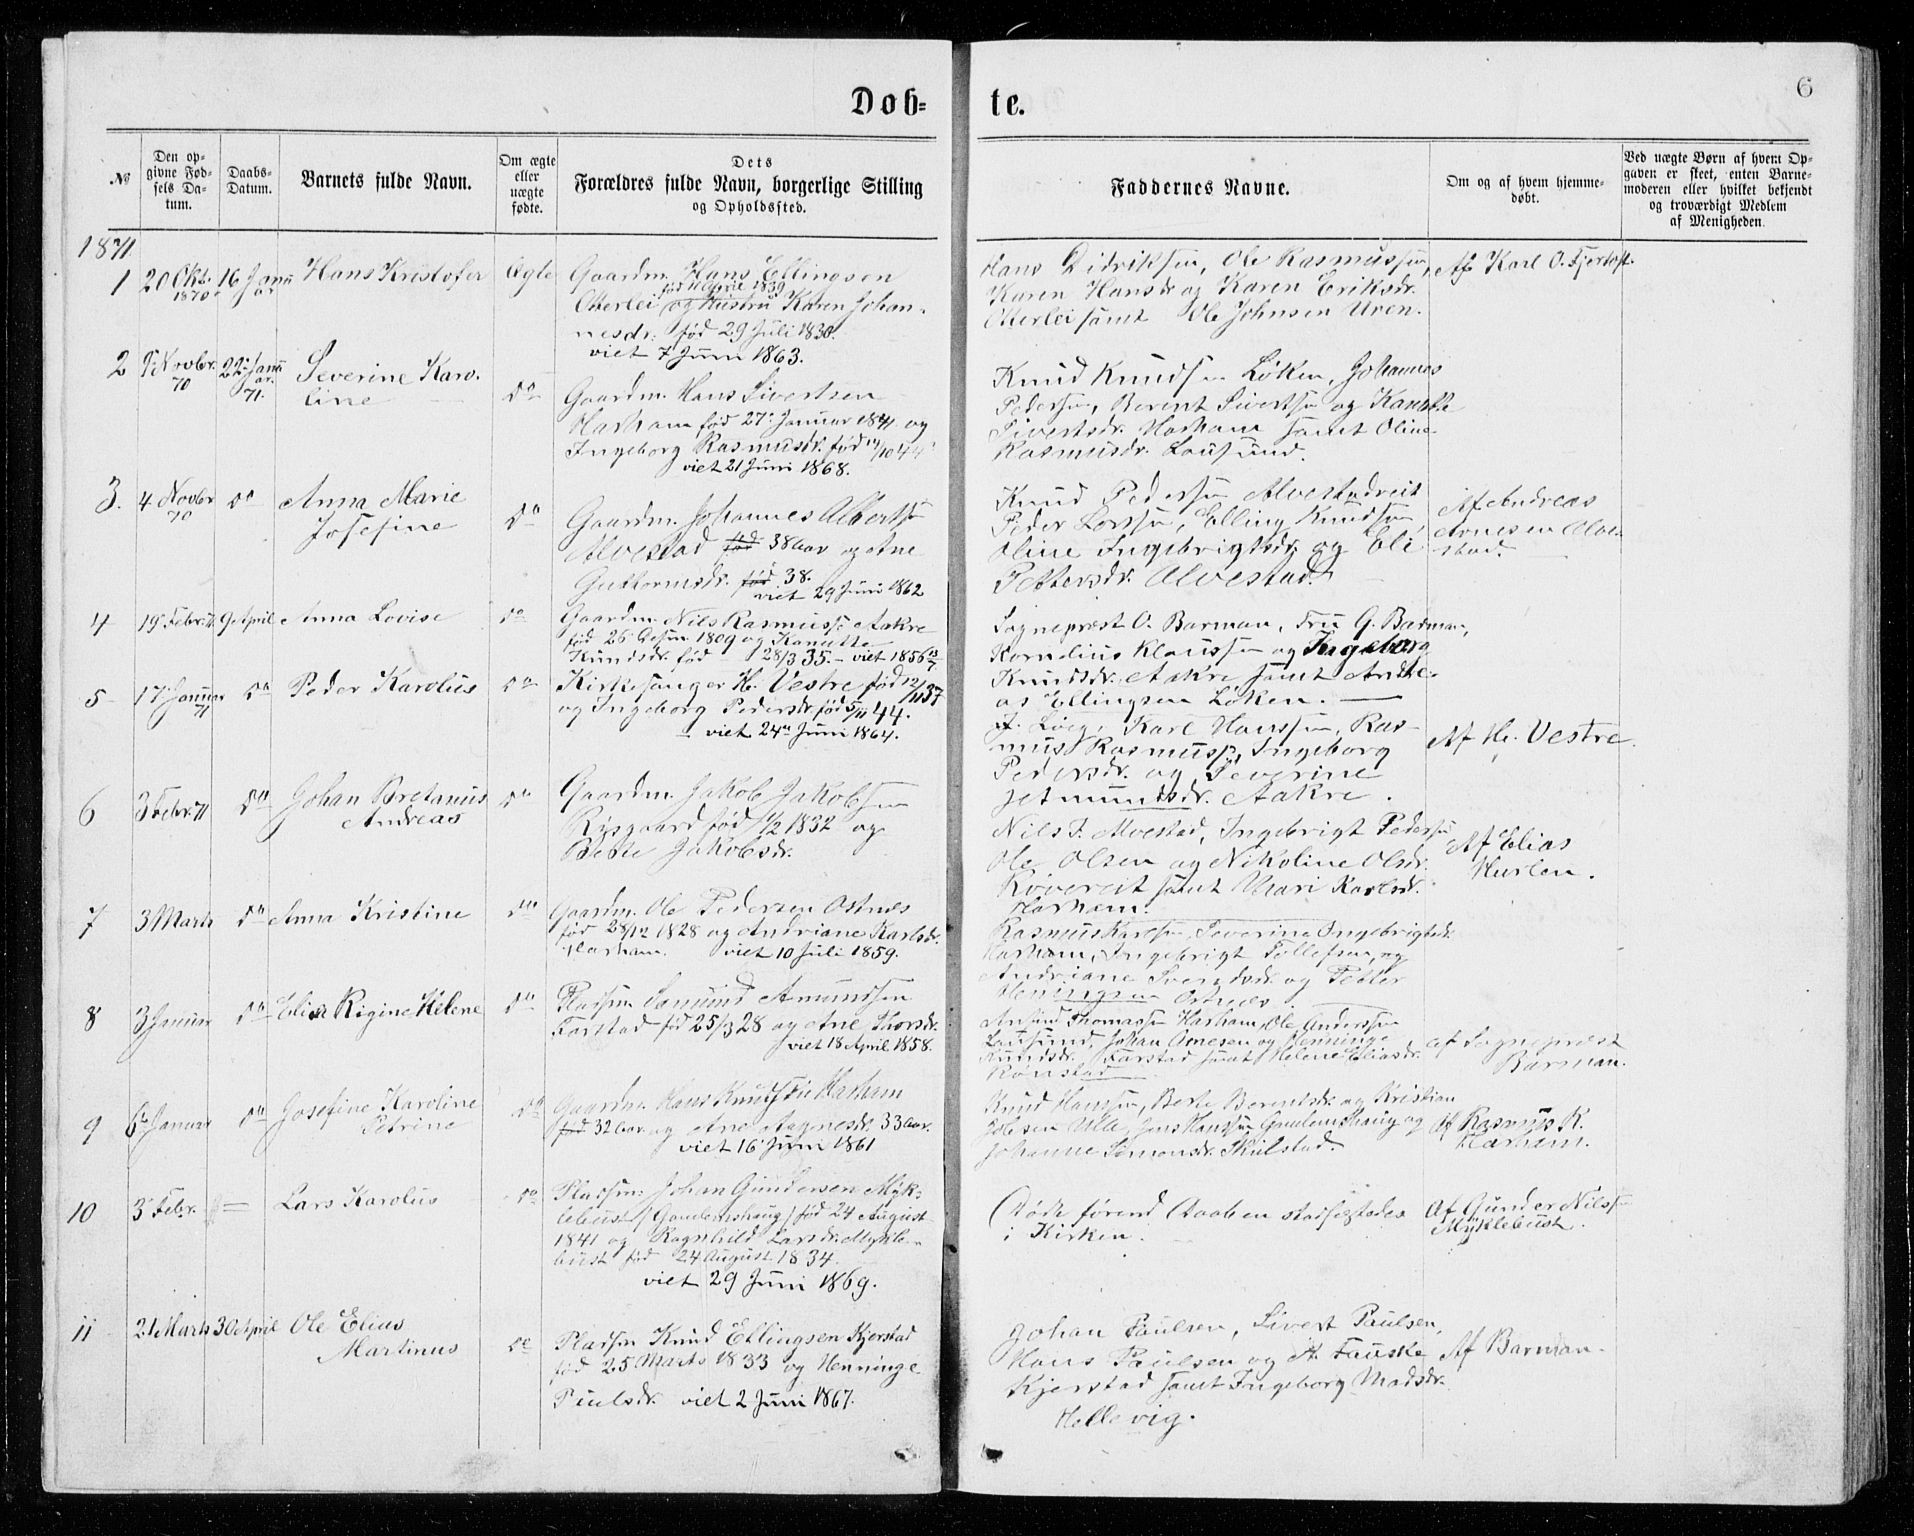 6
Døb-
te.
№
Den op-
givne Fød-
sels Da-
tum.
Daabs-
Datum.
Barnets fulde Navn.
Om ægte
eller
uægte
fødte.
Dets
Forældres fulde Navn, borgerlige Stilling
og Opholdssted.
Faddernes Navne.
Om og af hvem hjemme-
døbt.
Ved uægte Børn af hvem Op-
gaven er skeet, enten Barne-
moderen eller hvilket bekjendt
og troværdigt Medlem
af Menigheden.
1871
1
20 Okt.
1870
16 Janu
ar
Hans Kristofer
Ægte
Gaardm. Hans Ellingsen
født April 1839
Otterlei og Hustru Karen Johan-
nesdr. fød 29 Juli 1830.
viet 7 Juni 1863.
Hans Didriksen, Ole Rasmussen,
Karen Hansdr og Karen Eriksdr.
Otterlei samt Ole Johnsen Uren.
Af Karl O. Fjertoft.
2
Novbr.
70
22 Janu
ar.
71.
Severine Karo-
line
do
Gaardm. Hans Sivertsen
Harham fød 27 Januar 1841 og
Ingeborg Rasmusdr. fød 14/10 44
viet 21 Juni 1868.
Knud Knudsen Løken, Johannes
Pedersen, Berent Sivertsen og Kanutte
Sivertsdr. Harham samt Oline
Rasmusdr. Lousund.
3.
4 Novbr
70
do
Anna Marie
Josefine
do
Gaardm. Johannes Albertsn
Alvestad fød 38 Aar og Ane
Guttormsdr. fød 38.
viet 29 Juni 1862
Knud Pedersen Alvestadreit
Peder Lorsen, Elling Knudsen
Oline Ingebrigtsdr. og Eli
Pettersdr. Alvestad.
Af Andreas
Arnesen Alve-
stad.
4
19 Febr. 71
9 April
Anna Lovise
do
Gaardm. Nils Rasmussn Aakre
fød 26 1809 og Kanutte
Knudsdr. fød 28/3 35. - viet 1856 13/7
Sognepræst O. Barman, Fru G. Barman,
Kornelius Klaussen og Ingeborg
Knudsdr. Aakre samt Andre-
as Ellingsen Løken.
5
17 Januar
71
do
Peder Karolus
do
Kirkesanger H. Vestre fød 12/11 37
og Ingeborg Pedersdr. fød 5/11 44.
viet 24 Juni 1864.
J. Løeg, Karl Hanssen, Ras-
mus Rasmussn, Ingeborg
Pedersdr. og Severine
Jetmundsdr. Aakre.
Af H. Vestre.
6
3 Febr. 71
do
Johan Bretanus
Andreas
do
Gaardm. Jakob Jakobsen
Rysgaard fød 1/2 1832 og
Berte Jakobsdr.
Nils J. Alvestad, Ingebrigt Pedersn
Ole Olsen og Nikoline Olsdr.
Røvereit samt Mari Karlsdr.
Harham.
Af Elias
Hurlen.
7
3 Marts
do
Anna Kristine
do
Gaardm. Ole Pedersen Ostnæs
fød 28/12 1828 og Andriane Karlsdr.
Harham. viet 10 Juli 1859.
Rasmus Karlsn, Severine Ingebrigtsdr.
Harham, Ingebrigt Tollefsen, og
Andriane Svendsdr. og Petter
Henningsen Ostnæs.
8
3 Januar
do
Elisa Rigine Helene
do
Pladsm. Samund Amundsen
Farstad fød 25/3 28 og Ane Thorsdr.
viet 18 April 1858.
Amund Thomassn Harham, Ole Andersen
Lousund, Johan Arnesen og Henninge
Knudsdr. Farstad samt Helene Eliasdr.
Rønstad
af Sognepræst
Barman.
9
6 Januar
do
Josefine Karoline
Petrine
do
Gaardm. Hans Knudssen Harham
fød 32 Aar og Ane Aagnesdr. 33 Aar.
viet 16 Juni 1861
Knud Hanssn, Berte Berentsdr. og Kristian
Jolesen Ulla, Jens Hanssen Gandemshaug og
Johanne Simonsdr. Skulstad.
Af Rasmus K.
Harham.
10
3 Febr.
Lars Karolus
do
Pladsm. Johan Gundersen Myk-
lebust (Gandemshaug) fød 24 August
1841 og Ragnhild Larsdr. Mykle-
bust fød 24 August 1834
viet 29 Juni 1869.
Døde førend Daaben stadfæstedes
i Kirken.
Af Gunder Nilsn
Myklebust.
11
21 Marts
30 April
Ole Elias
Martinus
do
Pladsm Knud Ellingsen Kjerstad
fød 25 Marts 1833 og Henninge
Paulsdr. viet 2 Juni 1867.
Johan Paulsen, Sivert Paulsen,
Hans Paulsen og A. Fauske
Kjerstad samt Ingeborg Madsdr.
Hellevig.
Af Barman.